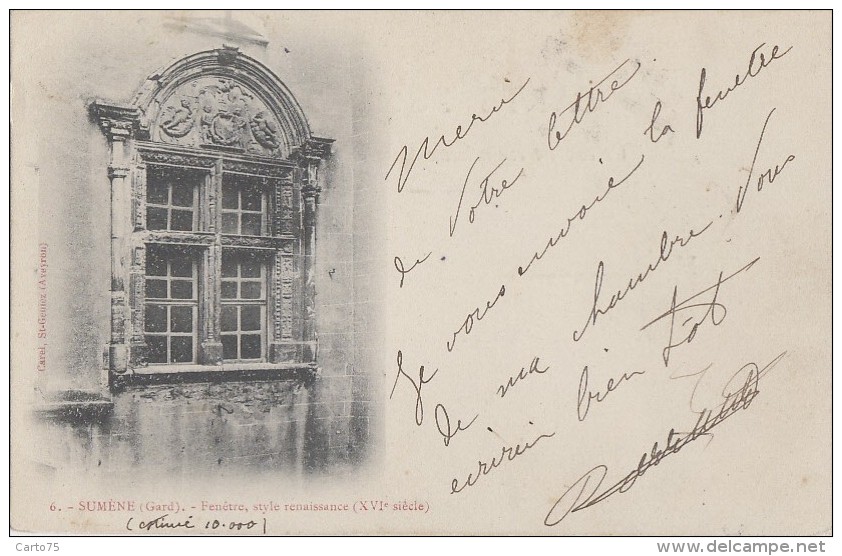 Merci
de Votre lettre
Je vous envoie la fenêtre
de ma chambre. Vous
ecrirai bien tôt
Carel, St-Geniez (Aveyron)
6. - SUMÈNE (Gard). - Fenêtre, style renaissance (XVIe siècle)
(estimé 10.000)
Carto75
www.delcampe.net